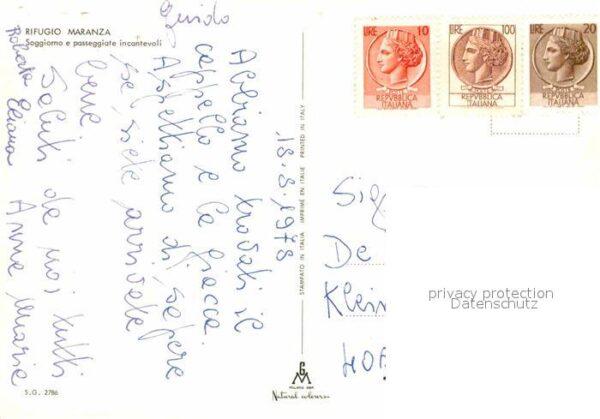 RIFUGIO MARANZA
Soggiorno e passeggiate incantevoli
18.8.1978
Abbiamo trovati il
cappello e la giacca
Aspettiamo di sapere
se siete arrivate
bene
Saluti da noi tutti
Anna Maria
Eliana
Roberto
Guido
STAMPATO IN ITALIA IMPRIMÉ EN ITALIE PRINTED IN ITALY
S.G. 2786
Natural colour
LIRE 10
POSTE
REPVBBLICA
ITALIANA
LIRE 100
REPVBBLICA
ITALIANA
LIRE 20
REPVBBLICA
ITALIANA
Sig
De
Klein
privacy protection
Datenschutz